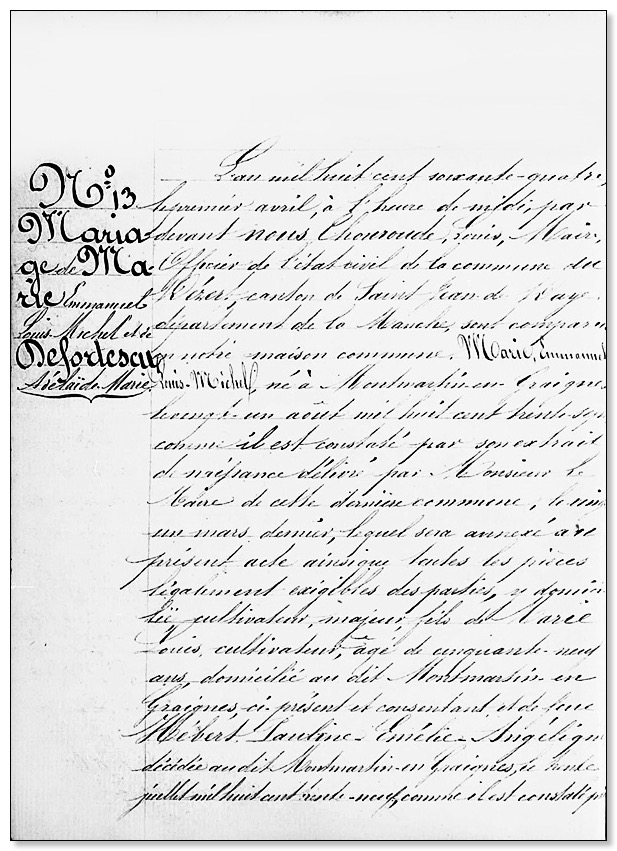 N° 13
Maria-
ge de Ma-
rie Emmanuel
Louis Michel et de
Defortescu
Adélaïde Marie
L'an mil huit cent soixante-quatre,
le premier avril, à l'heure de midi, par
devant nous, Louis, Maire,
Officier de l'état civil de la commune du
Dézert, canton de Saint Jean de Daye
département de la Manche, sont comparu
en notre maison commune, Marie, Emmanuel
Louis-Michel, né à Montmartin-en-Graignes
le vingt-un août mil huit cent trente-sept
comme il est constaté par son extrait
de naissance délivré par Monsieur le
Maire de cette dernière commune, le
un mars dernier, lequel sera annexé au
présent acte ainsi que toutes les pièces
légalement exigibles des parties, y domici-
lié, cultivateur, majeur, fils de Marie
Louis, cultivateur, âgé de cinquante-neuf
ans, domicilié au dit Montmartin-en
Graignes, ci-présent et consentant, et de feue
Hébert Pauline-Emélie-Angéliqu
décédée au dit Montmartin-en Graignes, le trente
juillet mil huit cent trente-neuf, comme il est constaté p